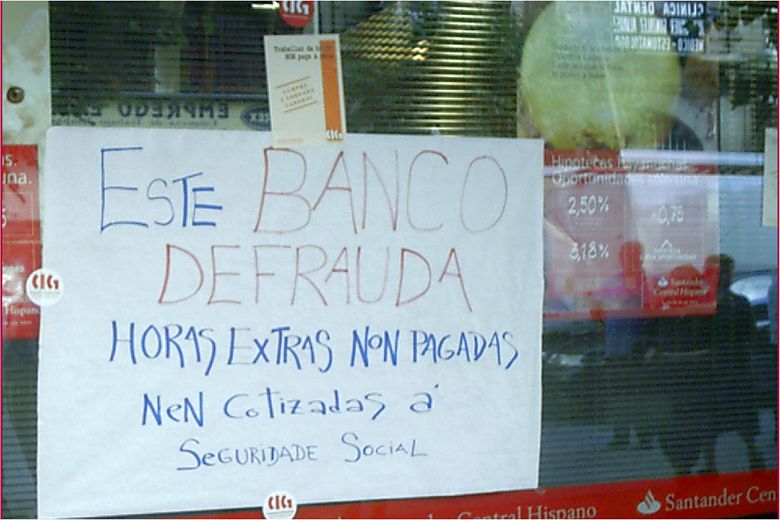 CIG
CLINICA DENTAL
MEDICO
Traballar de
NON paga a
CIG
EMPREGO
ESTE BANCO
DEFRAUDA
HORAS EXTRAS NON PAGADAS
NEN Cotizadas á
SEGURIDADE SOCIAL
CIG
CIG
s.
una.
Hispano
Hipotecas hay muchas.
Oportunidades sólo una.
2,50%
+0,75
3,18%
Santander
Central Hispano
Central Hispano
Santander Cen